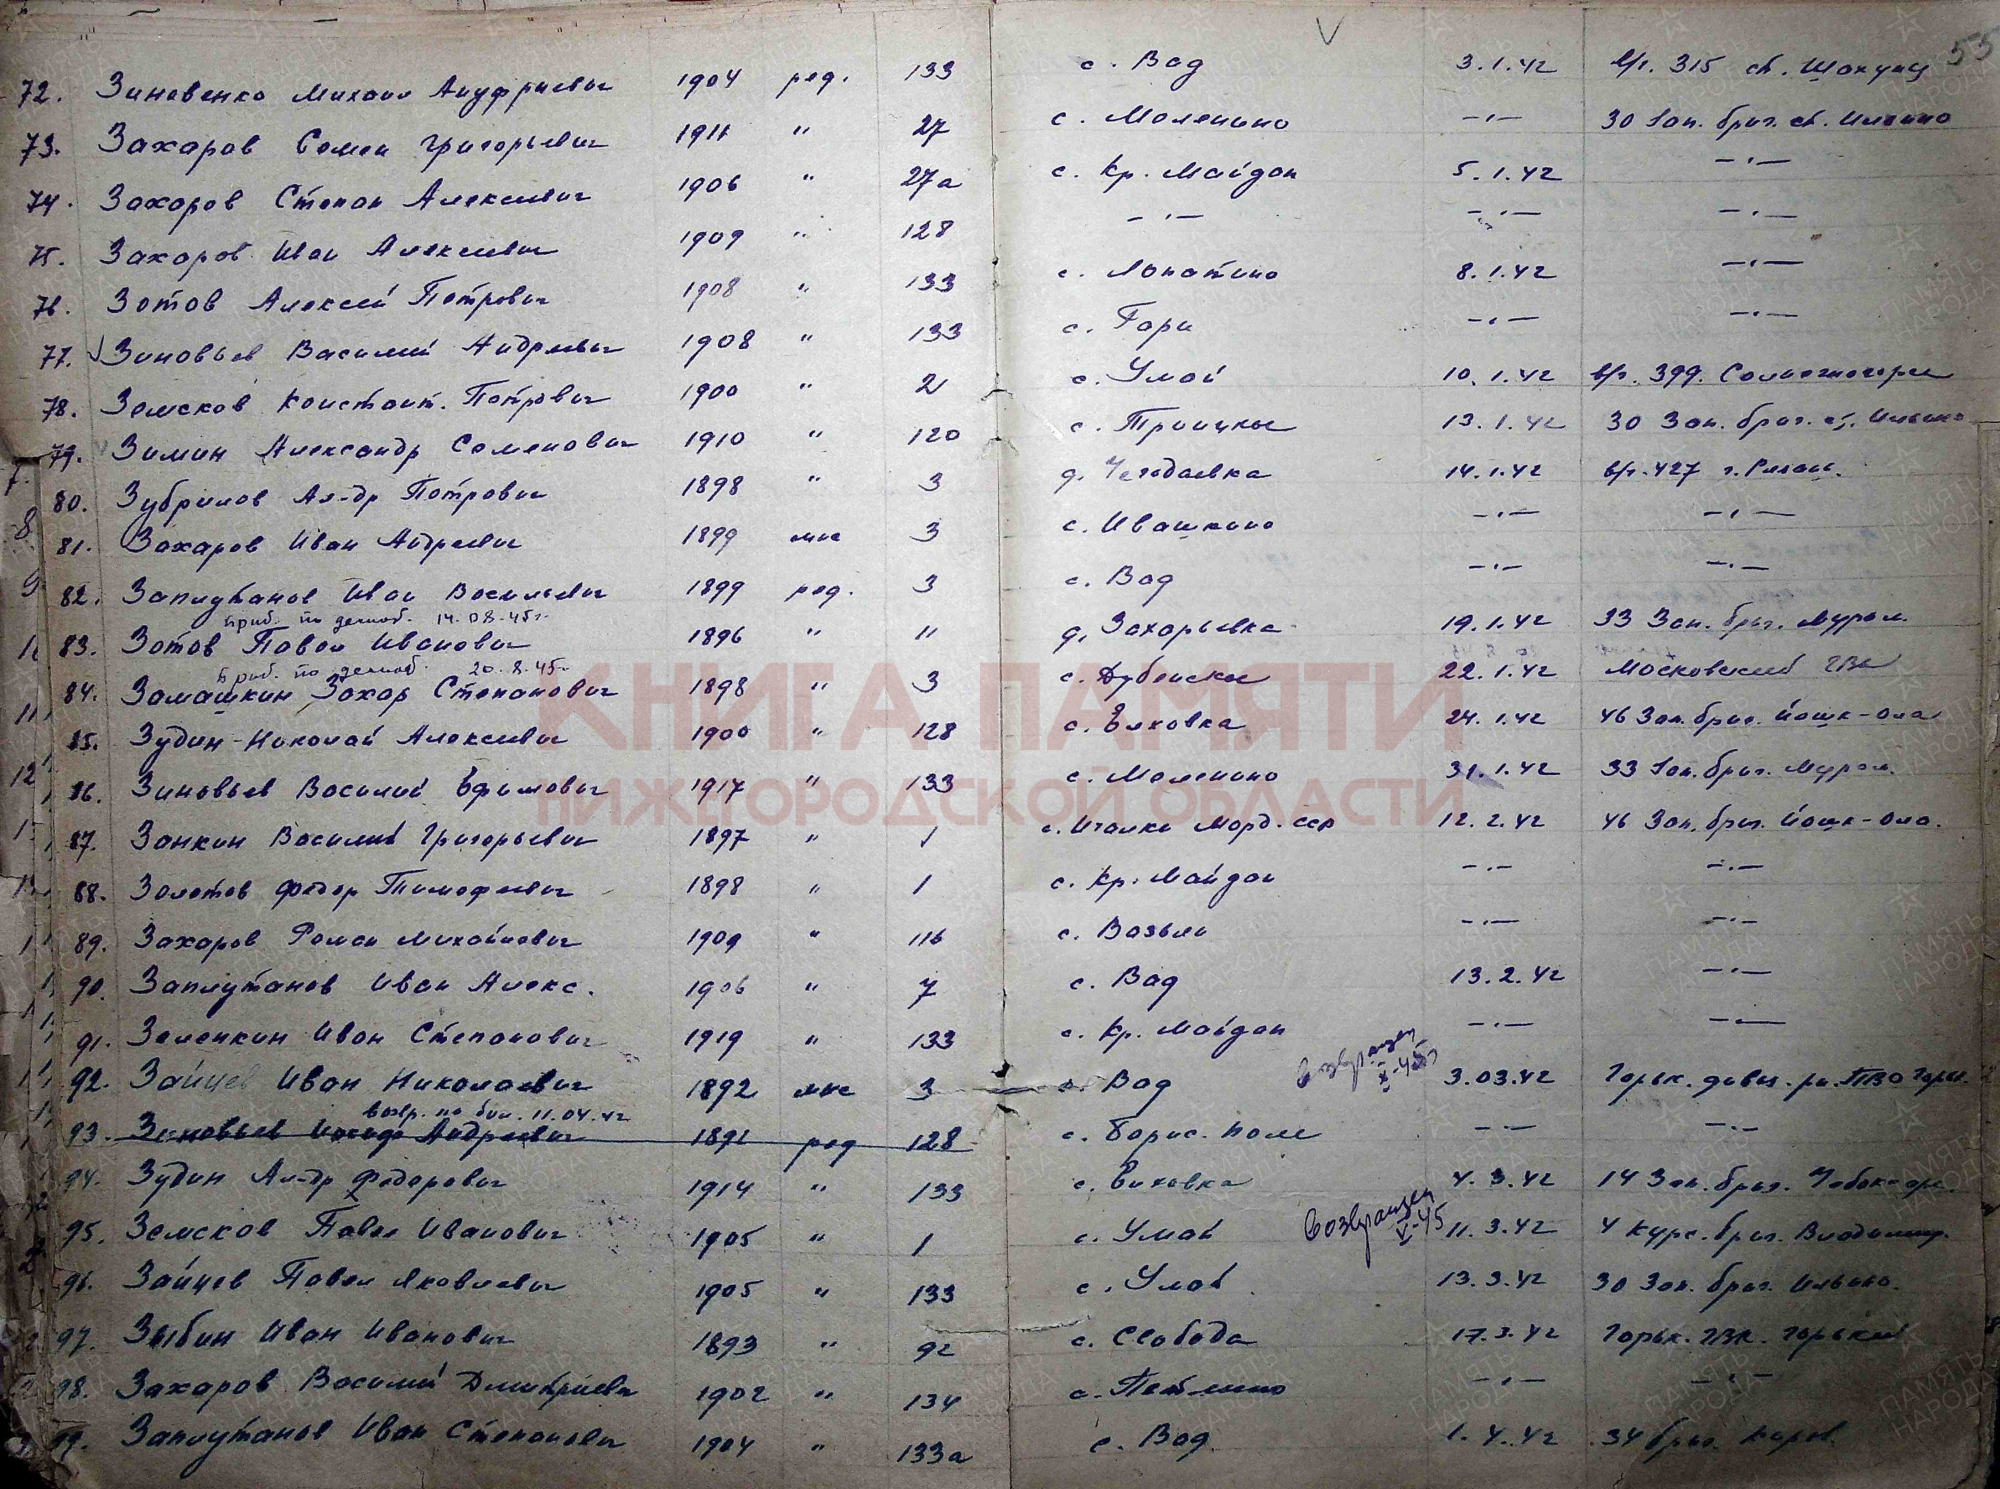 55
72. Зиновенко Михаил Ануфриевич 1904 ряд. 133 с. Вад 3.1.42 в/ч. 315 ст. Шахунья
73. Захаров Семен Григорьевич 1911 " 27 с. Моленино —"— 30 Зап. бриг. ст. Ильино
74. Захаров Степан Алексеевич 1906 " 27а с. Кр. Майдан 5.1.42 —"—
75. Захаров Иван Алексеевич 1909 " 128 —"— —"— —"—
76. Зотов Алексей Петрович 1908 " 133 с. Лопатино 8.1.42 —"—
77. Зиновьев Василий Андреевич 1908 " 133 с. Гари —"— —"—
78. Земсков Констант. Петрович 1900 " 2 с. Умай 10.1.42 в/ч. 399. Солнечногорск
79. Зимин Александр Семенович 1910 " 120 с. Троицкое 13.1.42 30 Зап. бриг. ст. Ильино
80. Зубрилов Ал-др Петрович 1898 " 3 д. Чегодаевка 14.1.42 в/ч. 427 г. Рязань.
81. Захаров Иван Андреевич 1899 мнс 3 с. Ивашкино —"— —"—
82. Заплутанов Иван Васильевич 1899 ряд. 3 с. Вад —"— —"—
приб. по демоб. 14.08.45г.
83. Зотов Павел Иванович 1896 " 11 д. Захарьевка 19.1.42 33 Зап. бриг. Муром.
Приб. по демоб. 20.8.45г
84. Замашкин Захар Степанович 1898 " 3 с. Дубенское 22.1.42 Московский ГВК
85. Зудин Николай Алексеевич 1900 " 128 с. Елховка 24.1.42 46 Зап. бриг. Йошк-Ола
86. Зиновьев Василий Ефимович 1917 " 133 с. Моленино 31.1.42 33 Зап. бриг. Муром.
87. Занкин Василий Григорьевич 1897 " 1 с. Ичалки Морд. ССР 12.2.42 46 Зап. бриг. Йошк-Ола.
88. Золотов Федор Тимофеевич 1898 " 1 с. Кр. Майдан —"— —"—
89. Захаров Роман Михайлович 1909 " 116 с. Вазьян —"— —"—
90. Заплутанов Иван Алекс. 1906 " 7 с. Вад 13.2.42 —"—
91. Зеленкин Иван Степанович 1919 " 133 с. Кр. Майдан —"— —"—
Возвращен X-45г
92. Зайцев Иван Николаевич 1892 мнс 3 с. Вад 3.03.42 Горьк. дивиз. р-н. ПВО Горьк.
возвр. по бол. 11.04.42
93. Зиновьев Андреевич 1891 ряд 128 с. Борис. Поле —"— —"—
94. Зудин Ал-др Федорович 1914 " 133 с. Елховка 4.3.42 14 Зап. бриг. Чебоксары.
Возвращен V-45
95. Земсков Павел Иванович 1905 " 1 с. Умай 11.3.42 4 курс. бриг. Владимир.
96. Зайцев Павел Яковлевич 1905 " 133 с. Умай 13.3.42 30 Зап. бриг. Ильино.
97. Зыбин Иван Иванович 1893 " 92 с. Слобода 17.3.42 Горьк. ГВК. Горький
98. Захаров Василий Дмитриевич 1902 " 134 с. Петлино —"— —"—
99. Заплутанов Иван Степанович 1904 " 133а с. Вад. 1.4.42 34 бриг. Киров.
КНИГА ПАМЯТИ
НИЖЕГОРОДСКОЙ ОБЛАСТИ